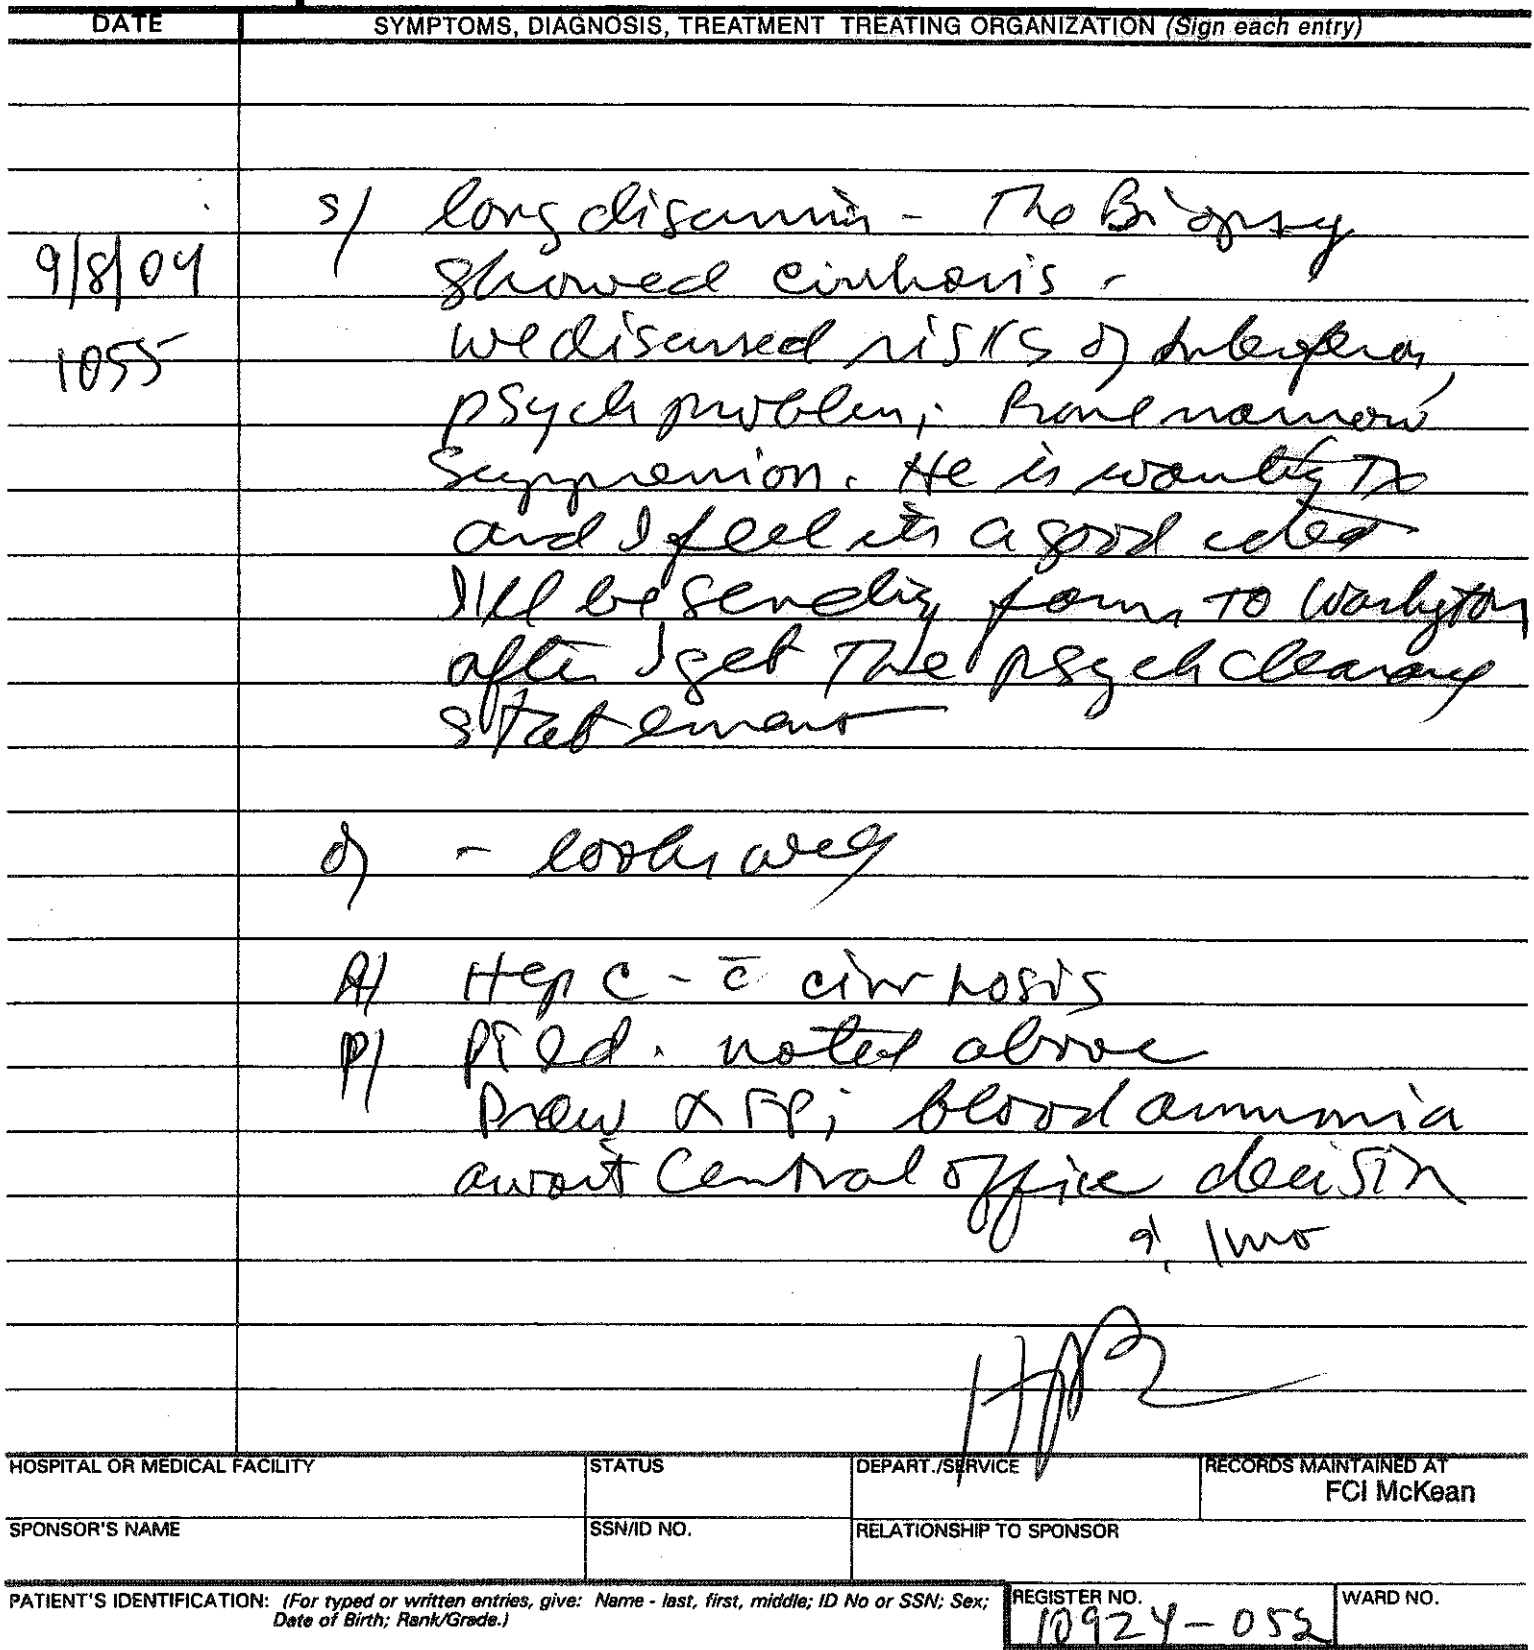 DATE SYMPTOMS, DIAGNOSIS, TREATMENT TREATING ORGANIZATION (Sign each entry)
s/ long discussion - The Biopsy
9/8/04 showed cirrhosis -
1055 we discussed risks of Interferon,
psych problem; Bone marrow
suppression. He is wanting Tx
and I feel its a good idea
I'll be sending forms to Washington
after I get the psych clearance
statement
o/ - looks well
A/ Hep C - c̄ cirrhosis
P/ pt ed. noted above
Draw α FP; blood ammonia
await Central office decision
1 mo
HOSPITAL OR MEDICAL FACILITY STATUS DEPART./SERVICE RECORDS MAINTAINED AT
FCI McKean
SPONSOR'S NAME SSN/ID NO. RELATIONSHIP TO SPONSOR
PATIENT'S IDENTIFICATION: (For typed or written entries, give: Name - last, first, middle; ID No or SSN; Sex; REGISTER NO. WARD NO.
Date of Birth; Rank/Grade.) 10924-052